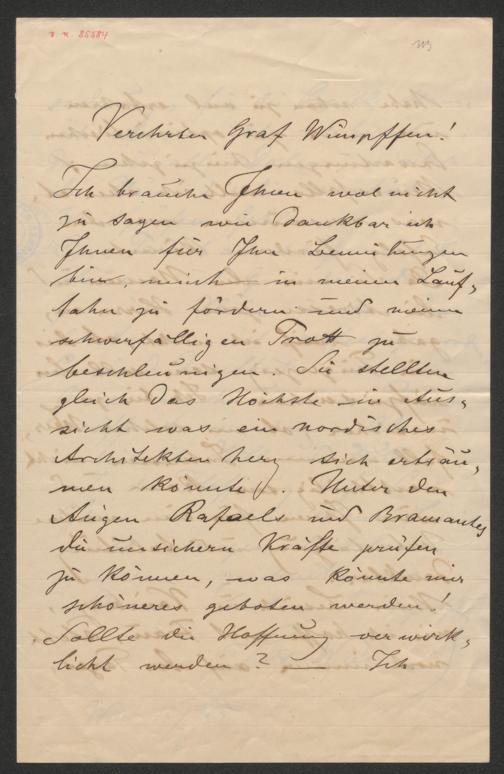 I. N. 85584
Verehrter Graf Wimpffen!
Ich brauche Ihnen wol nicht
zu sagen wie dankbar ich
Ihnen für Ihre Bemühungen
bin mich in meiner Lauf-
bahn zu fördern und meinen
schwerfälligen Trott zu
beschleunigen. Sie stellten
gleich das Höchste in Aus-
sicht was ein nordisches
Architektenherz sich erträu-
men könnte. Unter den
Augen Rafaels und Bramantes
die unsichern Kräfte prüfen
zu können, was könnte mir
schöneres geboten werden!
Sollte die Hoffnung verwirk-
licht werden? — Ich